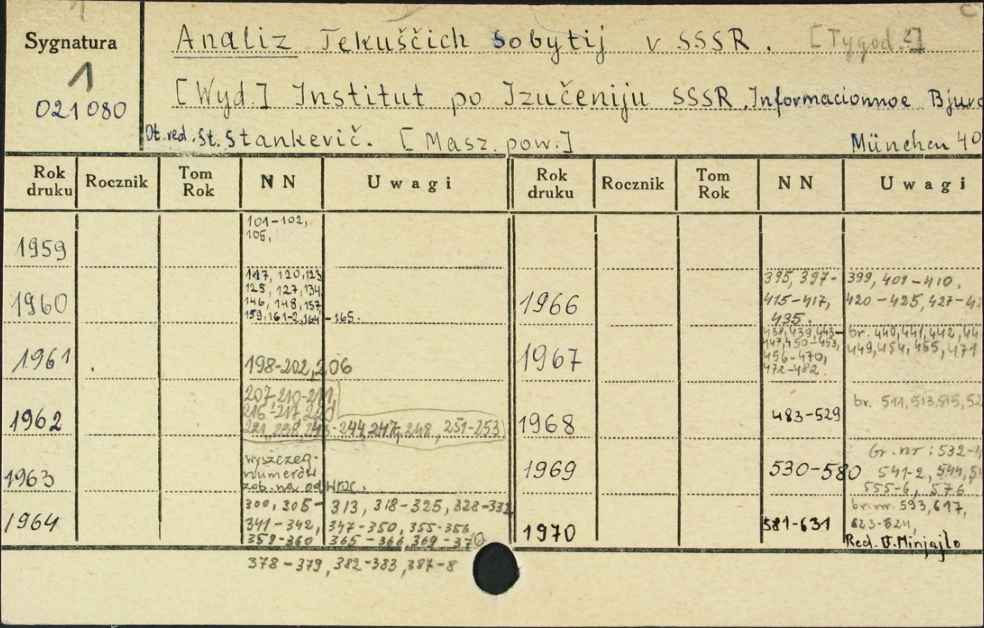 Sygnatura
1
021080
Analiz Tekuščich Sobytij v SSSR. [Tygod.]
[Wyd.] Institut po Izučeniju SSSR. Informacionnoe Bjuro
Ot. red. St. Stankevič. [Masz. pow.] München 40
Rok druku Rocznik Tom Rok NN Uwagi Rok druku Rocznik Tom Rok NN Uwagi
1959 101-102, 105,
1960 117, 120, 123 125, 127, 134 146, 148, 157 159, 161-2, 164-165.
1961. 198-202, 206
1962 207, 210-211, 216-217, 220 221, 238, 243-244, 247, 248, 251-253
1963 wyszczeg. numerów zob. na odwroc.
1964 300, 305-313, 318-325, 328-332 341-342, 347-350, 355-356 359-360 365-366, 369-370
378-379, 382-383, 387-8
1966 395, 397-399, 401-410, 415-417, 420-425, 427- 435
1967 438, 439, 443- 447, 450-453, 456-470, 472-482 br. 440, 441, 442, 449, 454, 455, 471
1968 483-529 br. 511, 513, 515,
1969 530-580 br. nr: 532- 541-2, 544, 555-6, 576
1970 581-631 br. nr. 593, 617, 623-624, Red. V. Minjajlo